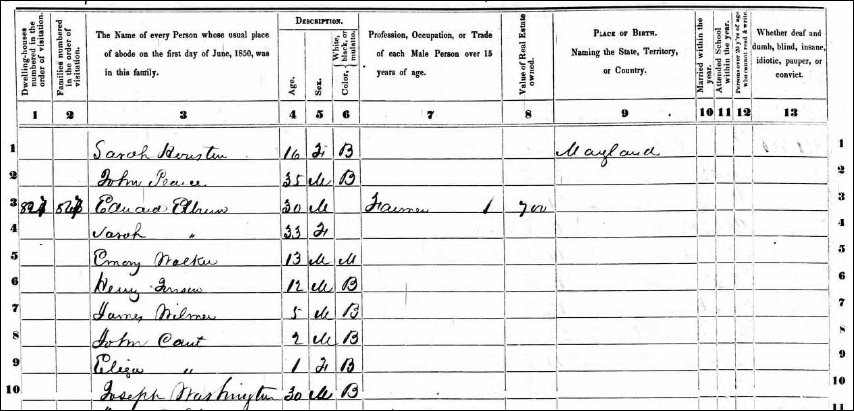 Dwelling-houses numbered in the order of visitation.
Families numbered in the order of visitation.
The Name of every Person whose usual place of abode on the first day of June, 1850, was in this family.
DESCRIPTION.
Age.
Sex.
Color, White, black, or mulatto.
Profession, Occupation, or Trade of each Male Person over 15 years of age.
Value of Real Estate owned.
PLACE OF BIRTH.
Naming the State, Territory, or Country.
Married within the year.
Attended School within the year.
Persons over 20 y'rs of age who cannot read & write.
Whether deaf and dumb, blind, insane, idiotic, pauper, or convict.
1 2 3 4 5 6 7 8 9 10 11 12 13
1 Sarah 16 F B Mayland 1
2 John Pearce 35 M B 2
3 Edward 30 M Farmer 1 700 3
4 Sarah " 33 F 4
5 Emory Walker 13 M M 5
6 Henry 12 M B 6
7 James Wilmer 5 M B 7
8 John 2 M B 8
9 Eliza " 1 F B 9
10 Joseph Washington 30 M B 10
11